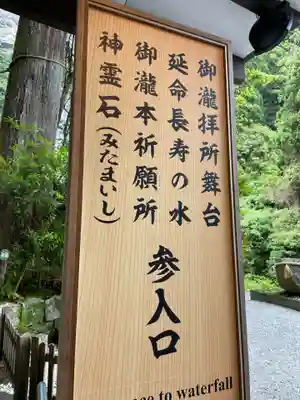 御瀧拝所舞台
延命長寿の水
御瀧本祈願所
神霊石(みたまいし)
参入口
to waterfall